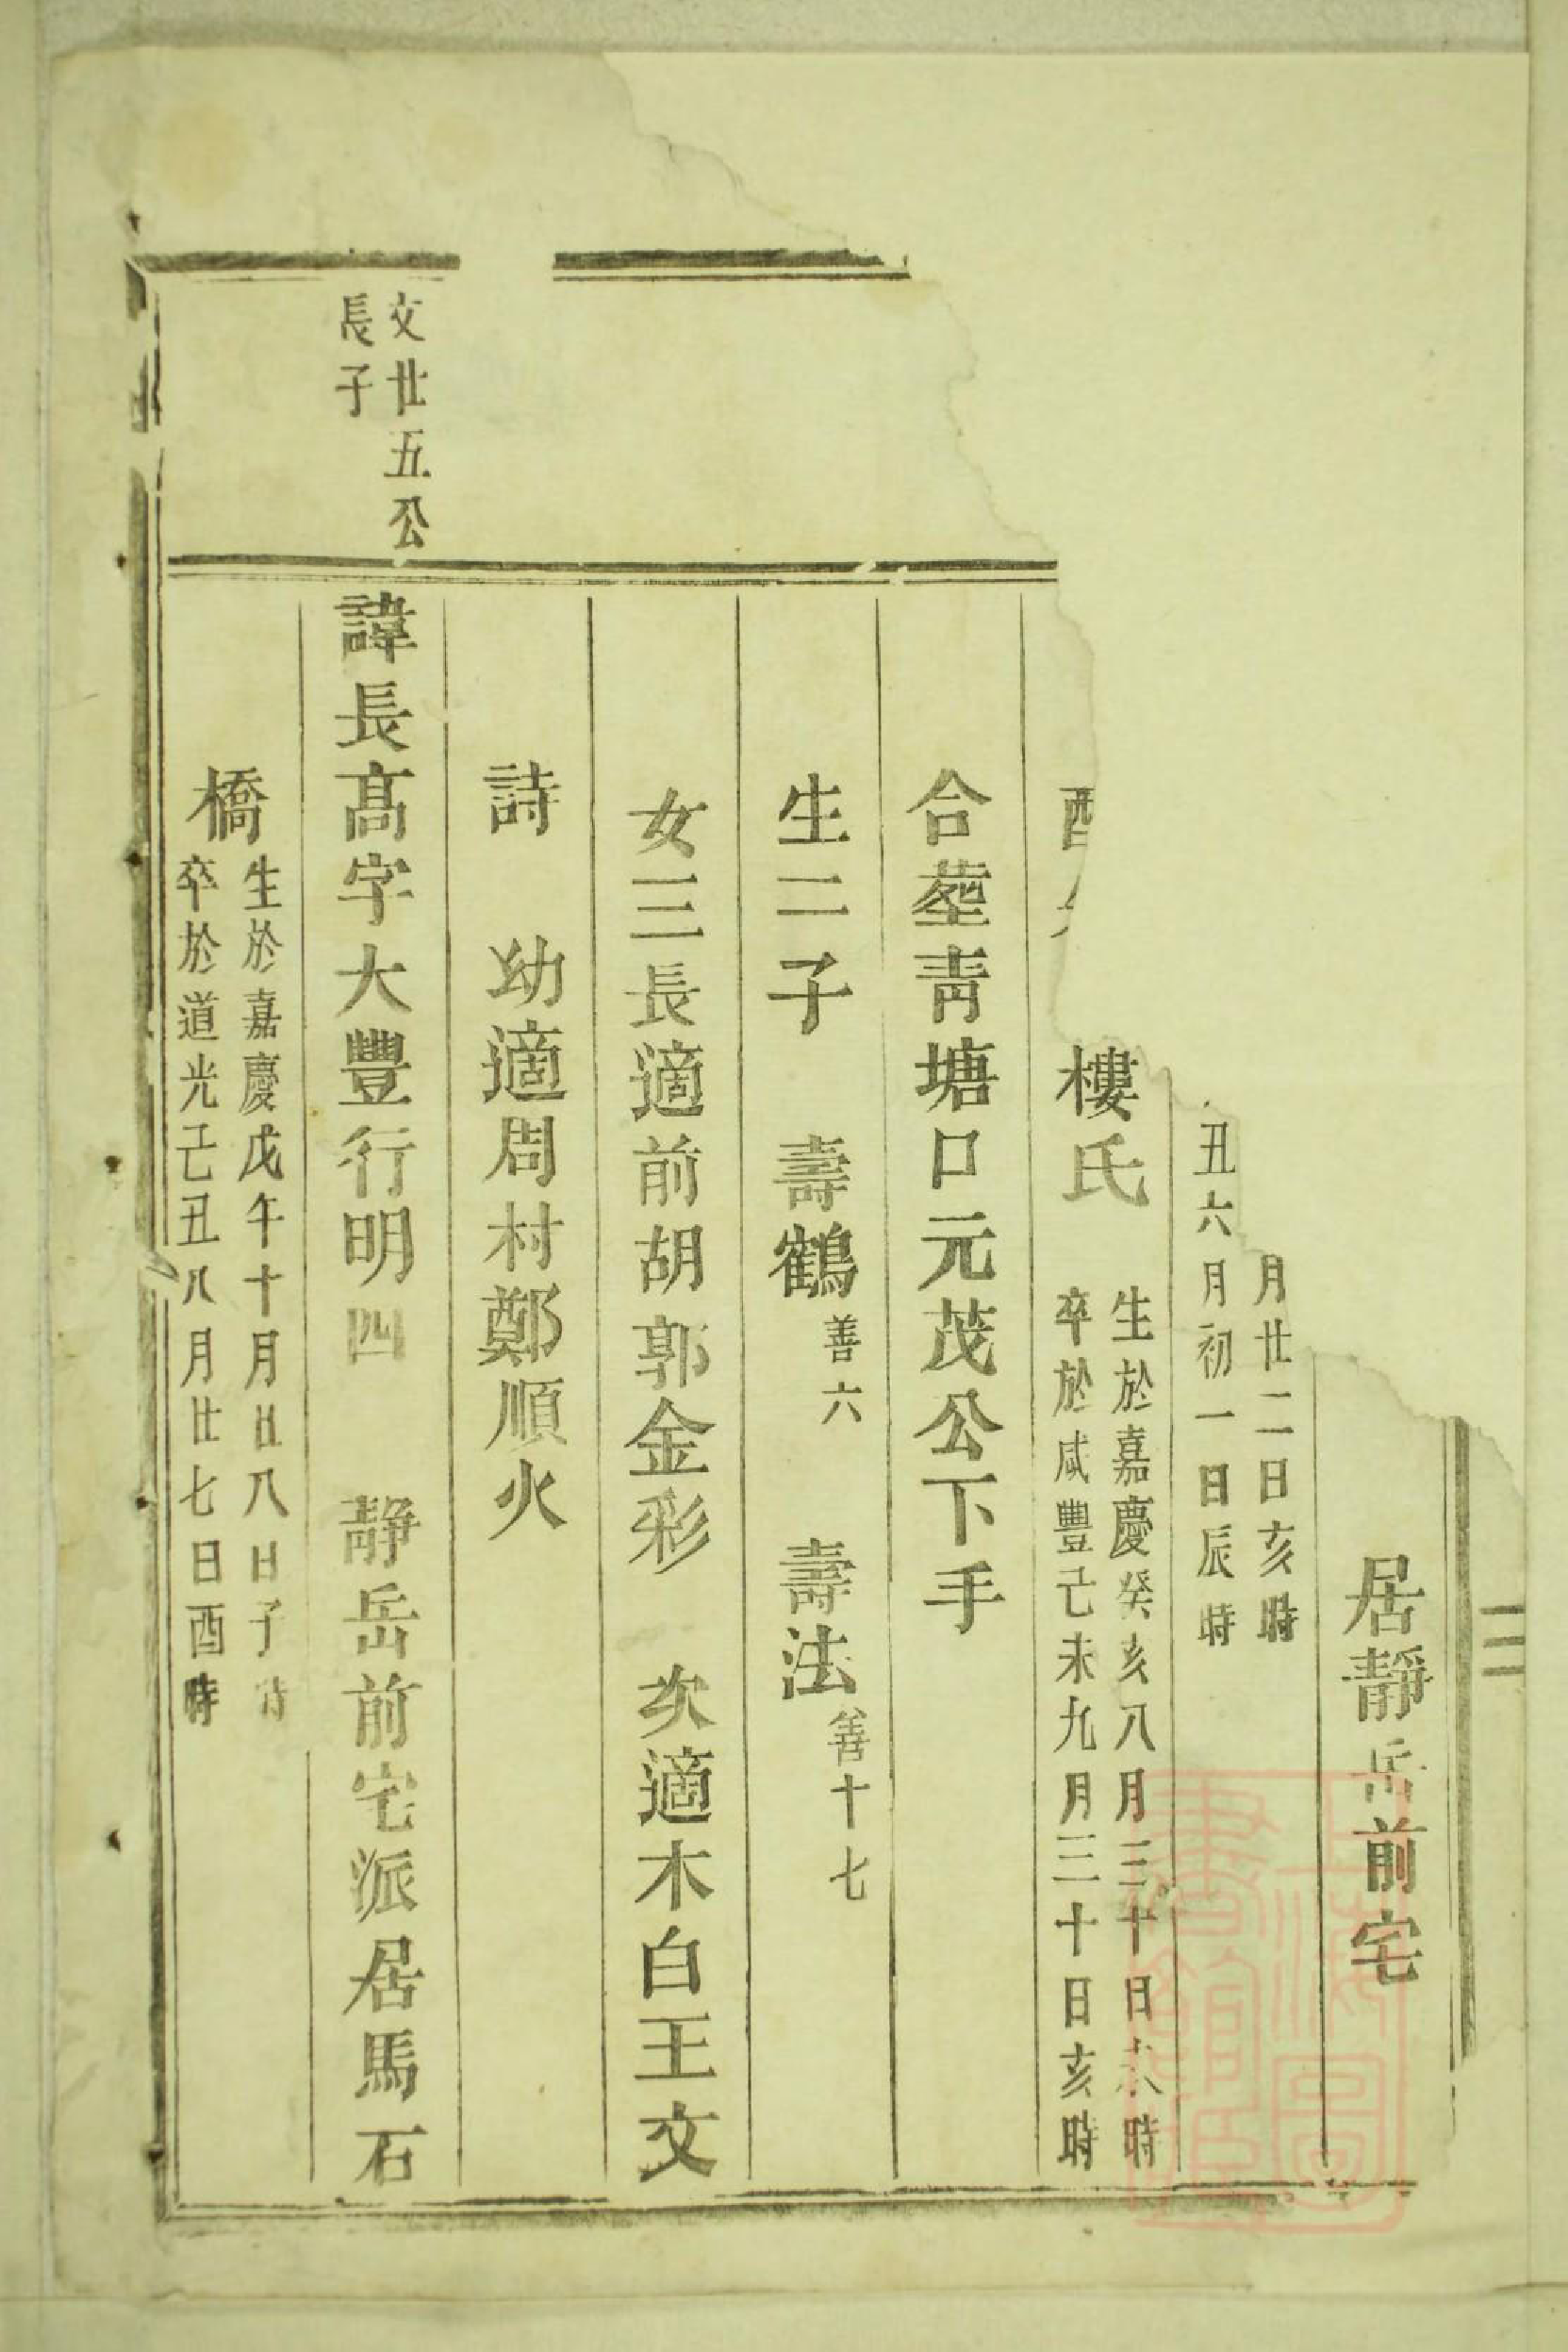 居靜岳前宅
月廿二日亥時
丑六月初一日辰時
配
樓氏
生於嘉慶癸亥八月三十日未時
卒於咸豐己未九月三十日亥時
合塟靑塘口元茂公下手
生二子 壽鶴善六 壽法善十七
女三長適前胡郭金彩 次適木白王文
詩 幼適周村鄭順火
文廿五公
長子
諱長高字大豐行明四 靜岳前宅派居馬石
橋
生於嘉慶戊午十月廿八日子時
卒於道光己丑八月廿七日酉時
上海圖書館藏